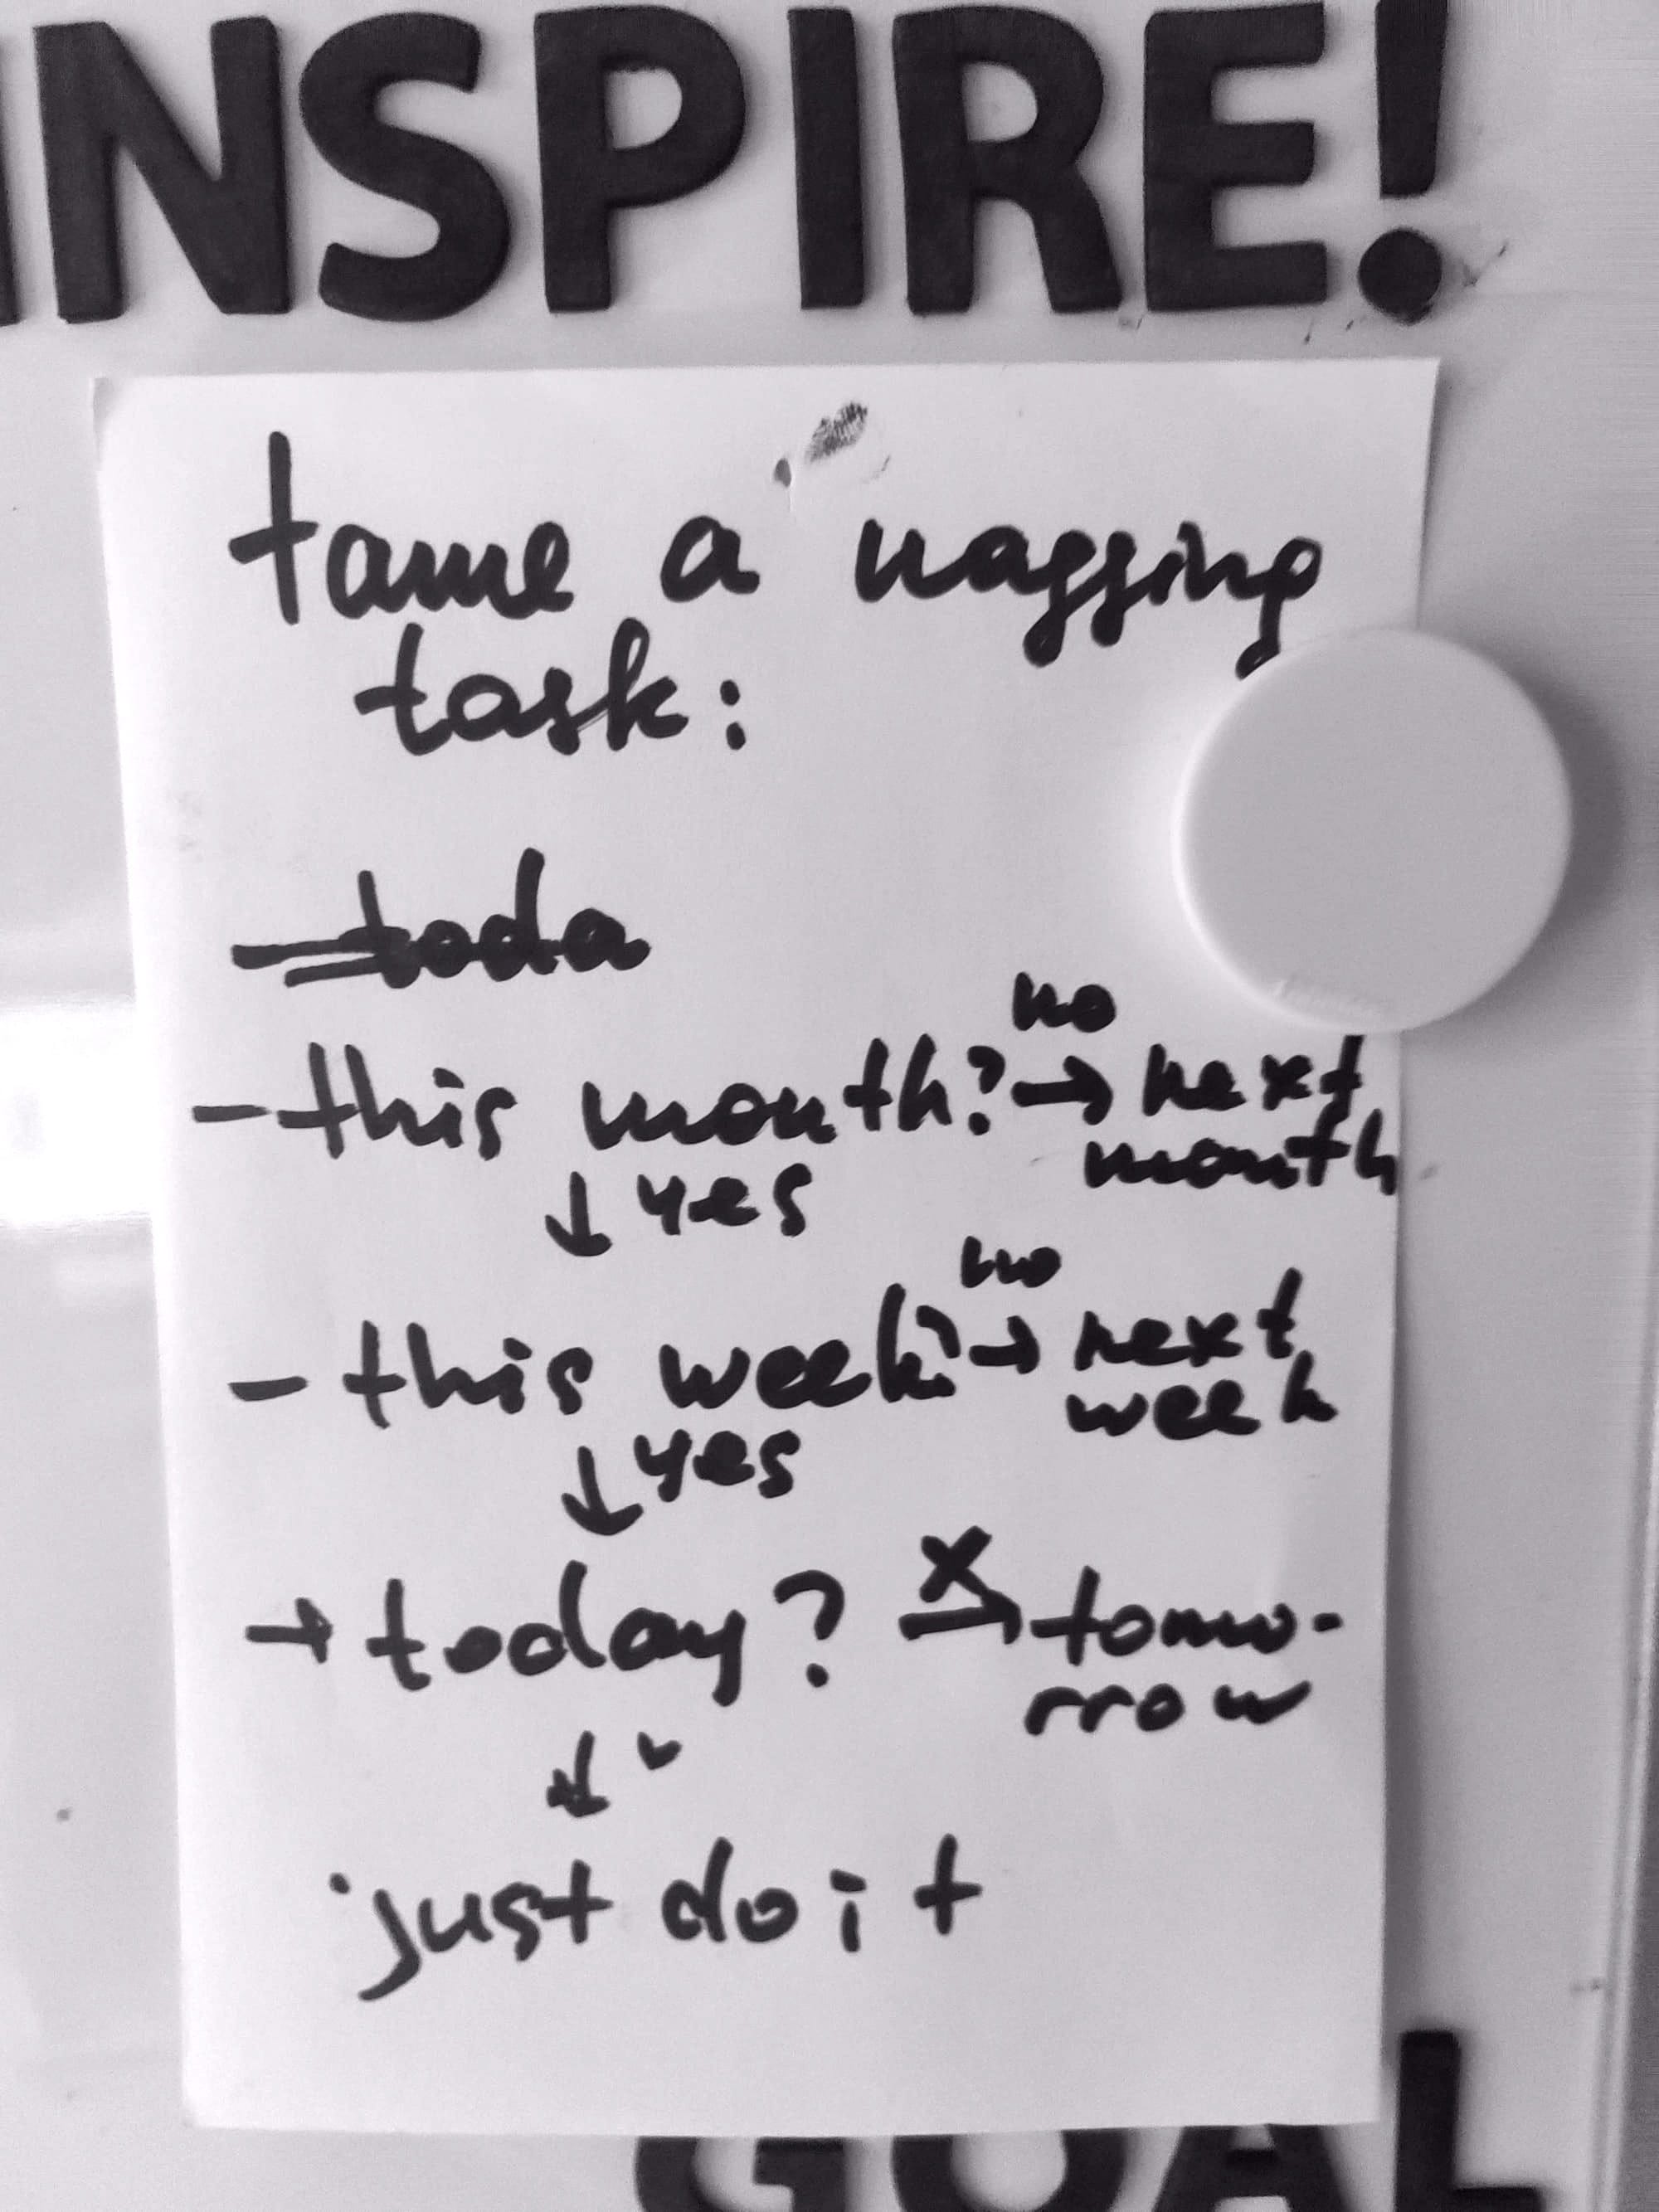 INSPIRE!
tame a nagging
task:
toda
no
- this month? → next
month
↓ yes
no
- this week? → next
week
↓ yes
→ today? x → tomo-
rrow
↓ ✓
just do it
GOAL